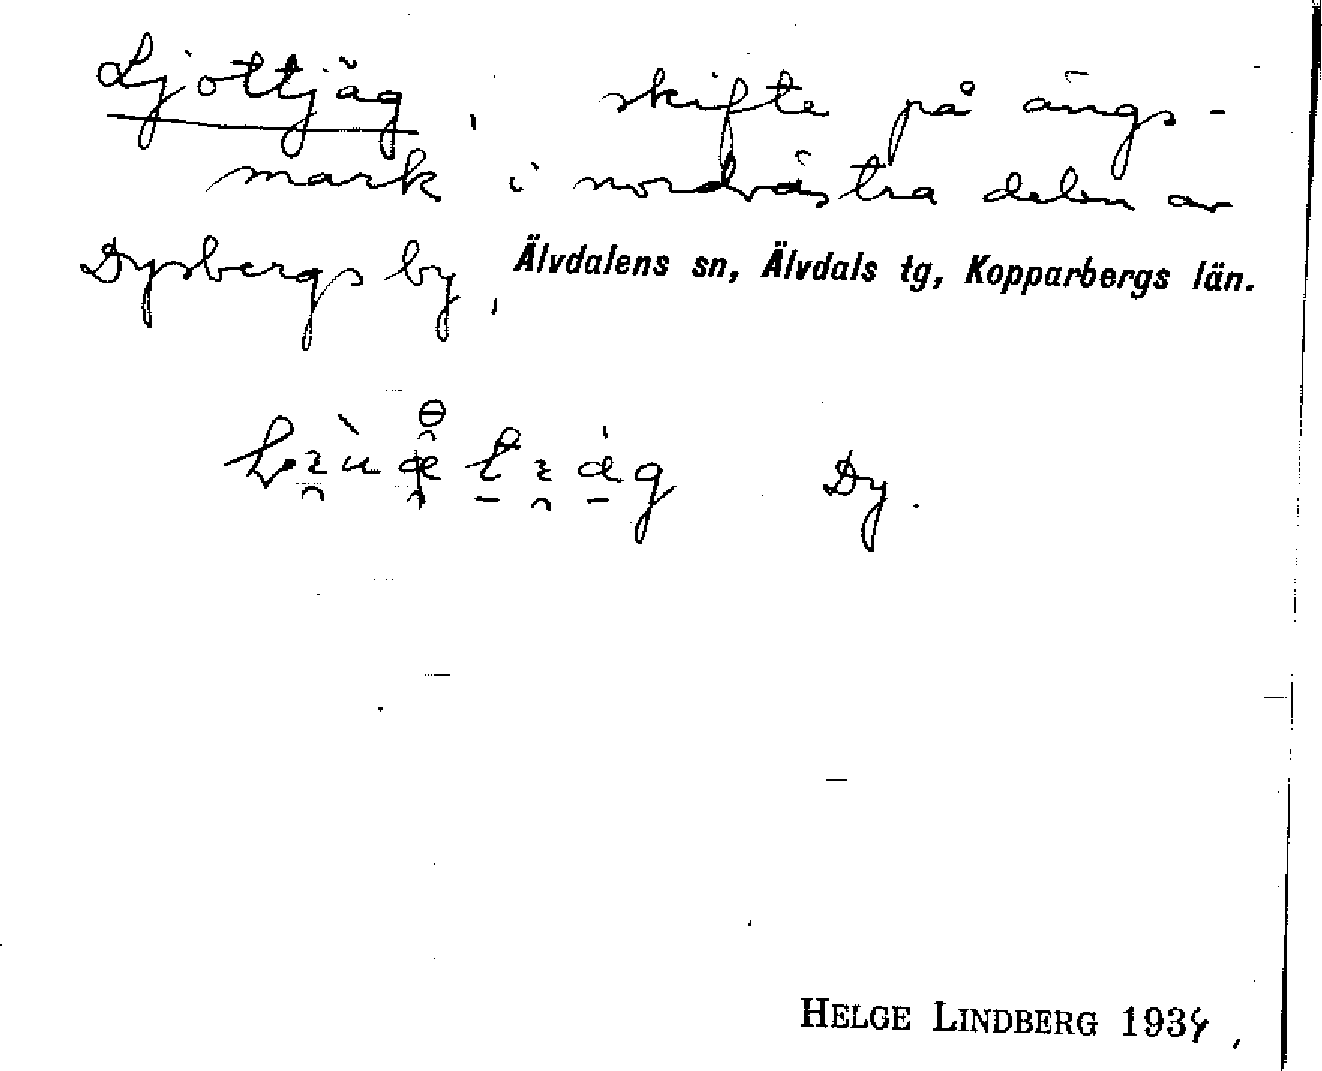 Ljottjäg, skifte på ängs-
mark i nordvästra delen av
Dysbergs by, Älvdalens sn, Älvdals tg, Kopparbergs län.
Dy.
HELGE LINDBERG 1934.